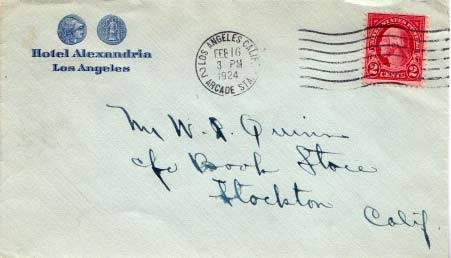 Hotel Alexandria
Los Angeles
LOS ANGELES CALIF.
2
FEB 16
3 PM
1924
ARCADE STA.
UNITED STATES POSTAGE
2 CENTS 2
Mr W. P. Quinn
c/o Book Store
Stockton
Calif.